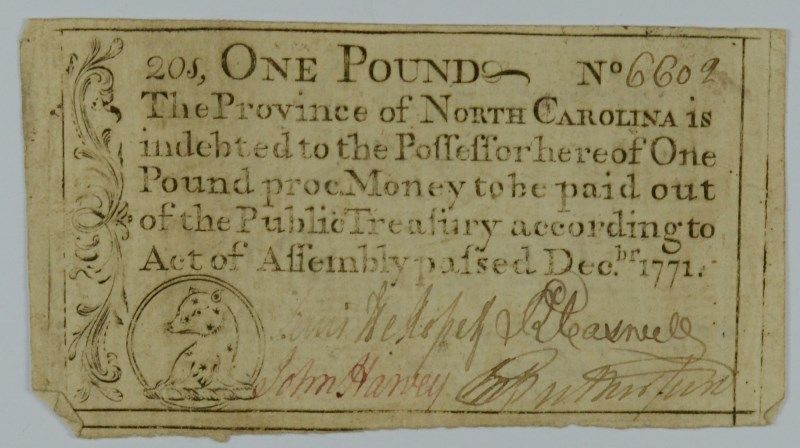 20s, ONE POUND No 6602
The Province of NORTH CAROLINA is
indebted to the Poſſeſſor hereof One
Pound proc. Money to be paid out
of the Public Treaſury according to
Act of Aſſembly paſſed Dec.br 1771.
Lewis De Roſſet R Caswell
John Harvey Rutherfurd